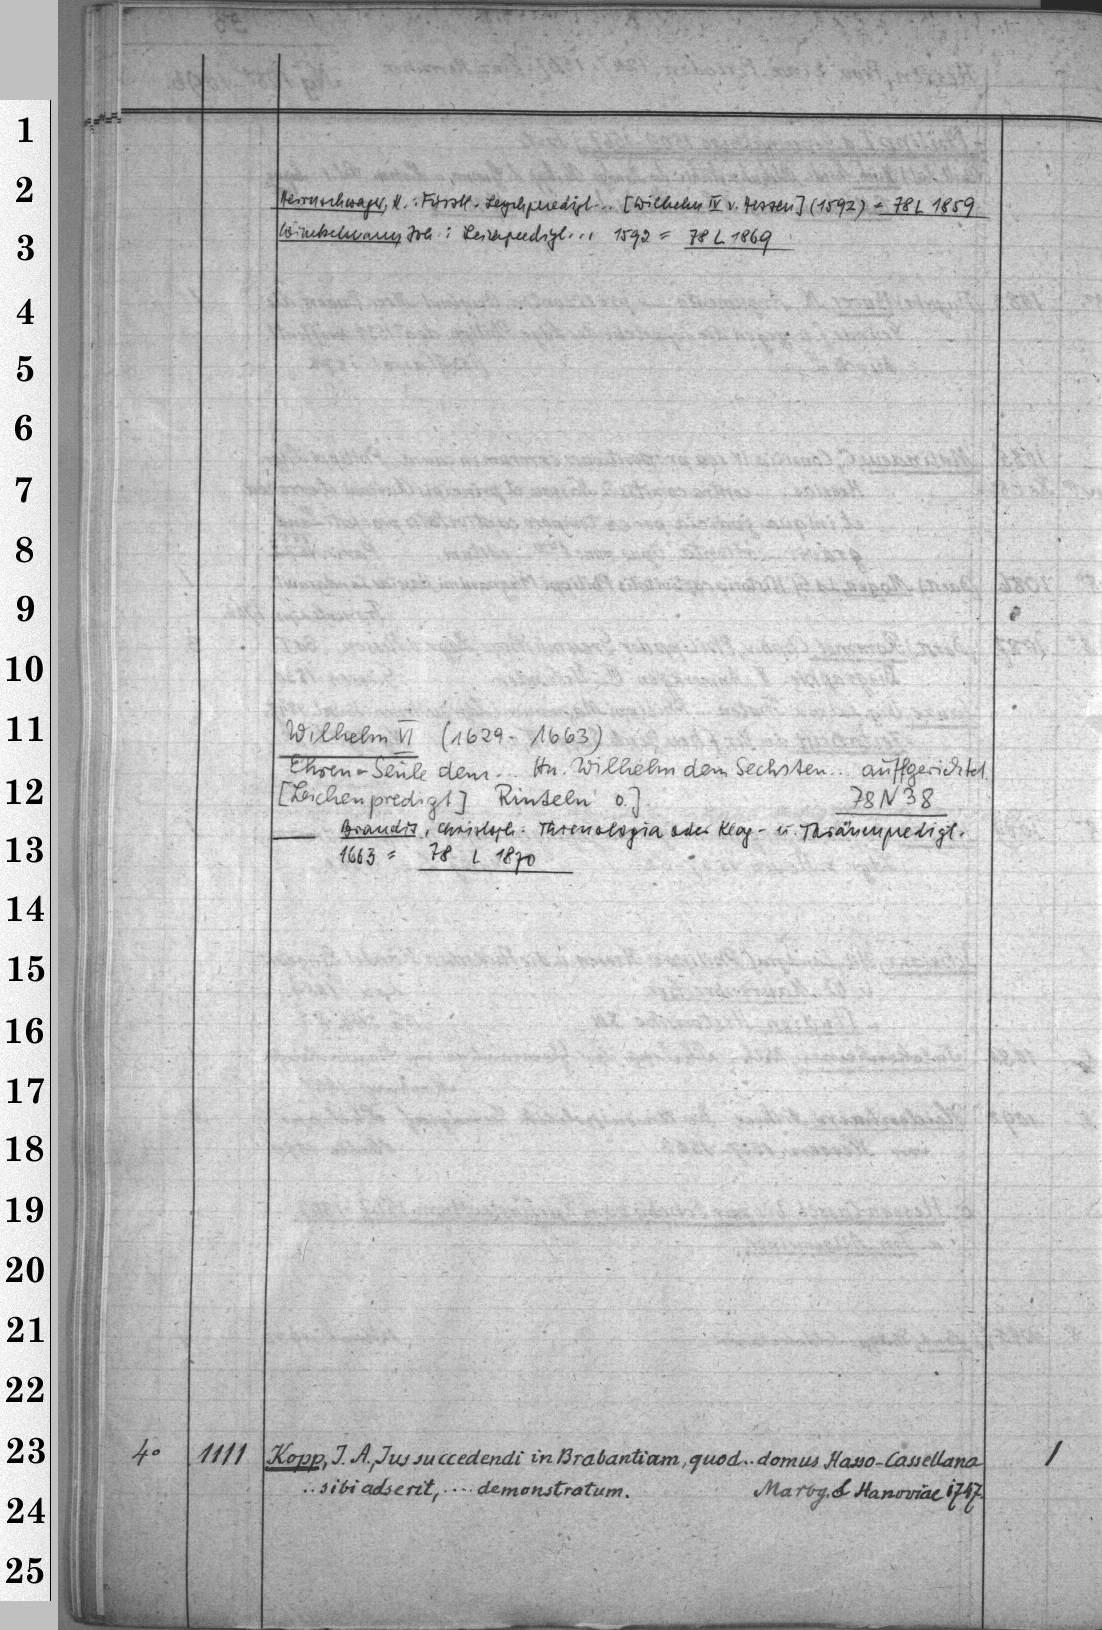 1
2
3
4
5
6
7
8
9
10
11
12
13
14
15
16
17
18
19
20
21
22
23
24
25
Herrnschwager, H.: Fürstl. Leychpredigt... [Wilhelm IV v. Hessen] (1592) = 78 L 1859
Winckelmann, Joh.: Leichpredigt... 1592 = 78 L 1869
Wilhelm VI (1629 - 1663)
Ehren-Seule dem... Hn. Wilhelm dem Sechsten... auffgerichtet.
[Leichenpredigt] Rinteln o.] 78 N 38
Brandis, Christoph. Threnologia oder Klag- u. Thränenpredigt.
1663 = 78 L 1870
4° 1111 Kopp, J. A., Jus succedendi in Brabantiam, quod.. domus Hasso-Cassellana 1
.. sibi adserit, .... demonstratum. Marbg. & Hanoviae 1747.